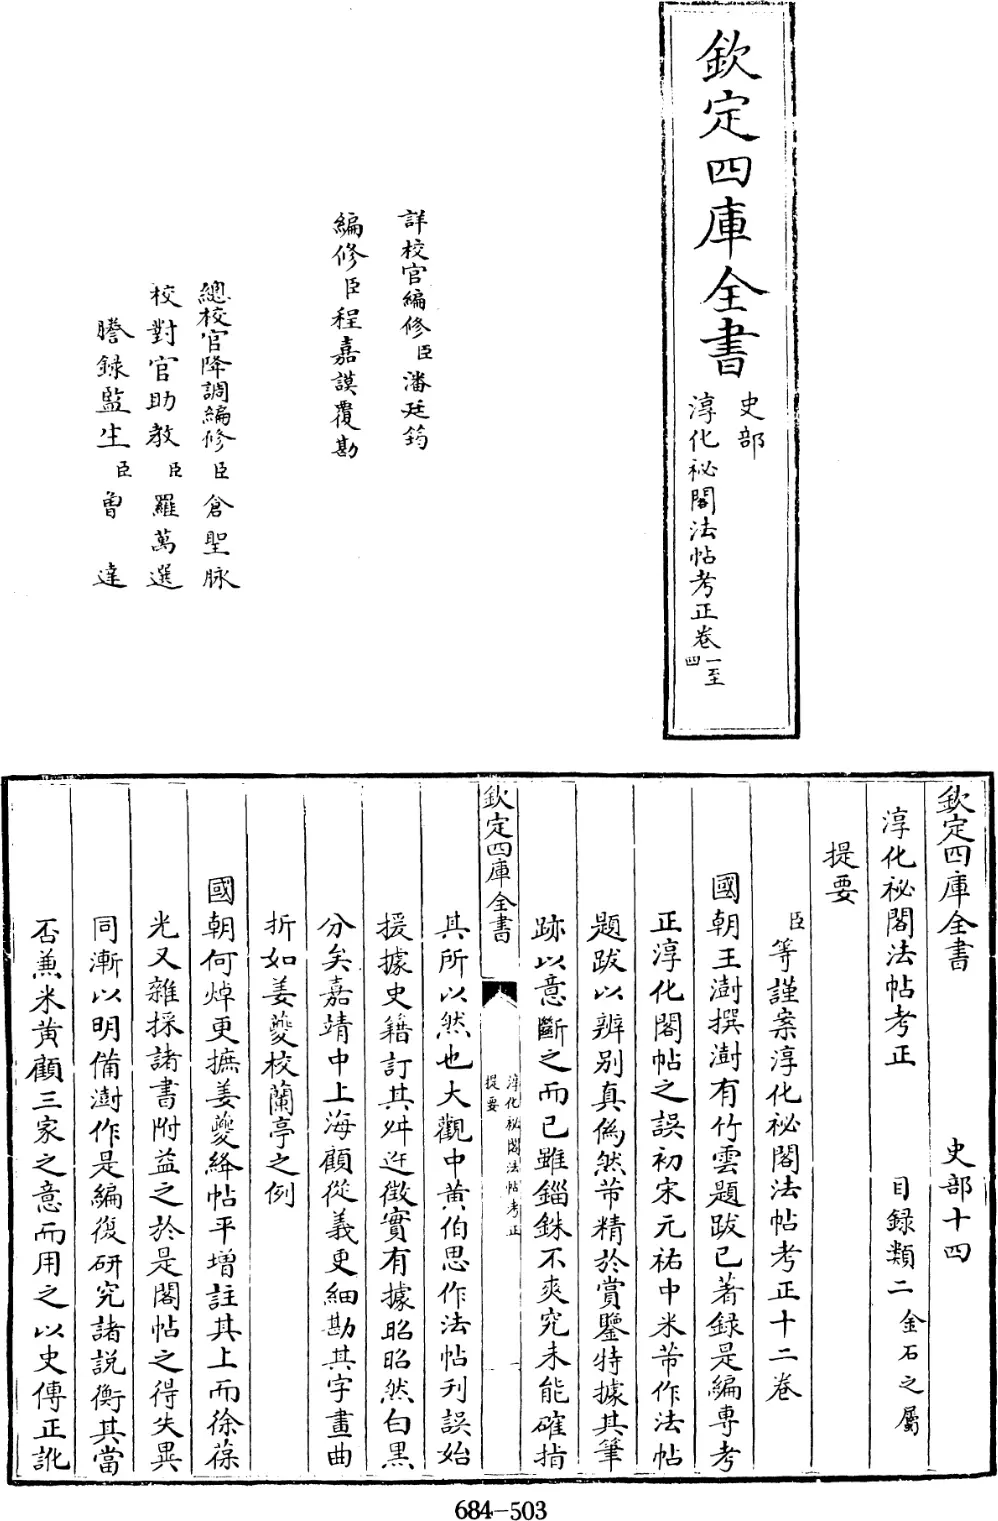 欽定四庫全書
史部
淳化祕閣法帖考正卷一至四
詳校官編修臣潘廷筠
編修臣程嘉謨覆勘
總校官降調編修臣倉聖脉
校對官助教臣羅萬選
謄錄監生臣魯達
欽定四庫全書 史部十四
淳化祕閣法帖考正 目録類二金石之屬
提要
臣等謹案淳化祕閣法帖考正十二卷
國朝王澍撰澍有竹雲題跋已著録是編專考
正淳化閣帖之誤初宋元祐中米芾作法帖
題跋以辨别真偽然芾精於賞鑒特據其筆
跡以意斷之而已雖錙銖不爽究未能確指
欽定四庫全書
淳化祕閣法帖考正
提要
一
其所以然也大觀中黄伯思作法帖刋誤始
援據史籍訂其舛迕徵實有據昭昭然白黒
分矣嘉靖中上海顧從義更細勘其字畫曲
折如姜夔校蘭亭之例
國朝何焯更摭姜夔絳帖平增註其上而徐葆
光又雜採諸書附益之於是閣帖之得失異
同漸以明備澍作是編復研究諸説衡其當
否兼米黄顧三家之意而用之以史傳正訛
684-503